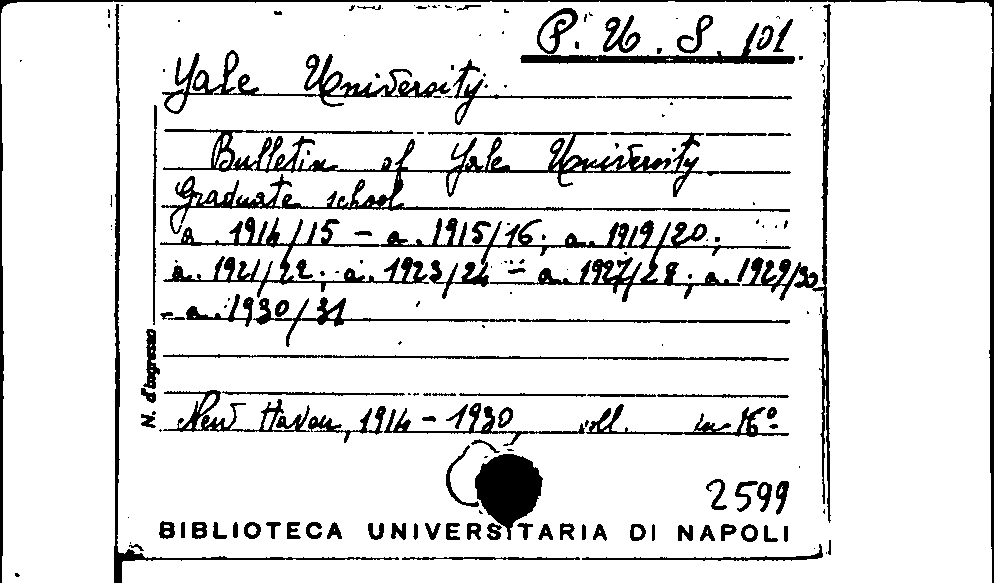 P. U. S. 101.
Yale University.
Bulletin of Yale University
Graduate school
a. 1914/15 - a. 1915/16; a. 1919/20;
a. 1921/22; a. 1923/24 - a. 1927/28; a. 1929/30
- a. 1930/31
N. d'ingresso
New Haven, 1914 - 1930, voll. in-16°
2599
BIBLIOTECA UNIVERSITARIA DI NAPOLI